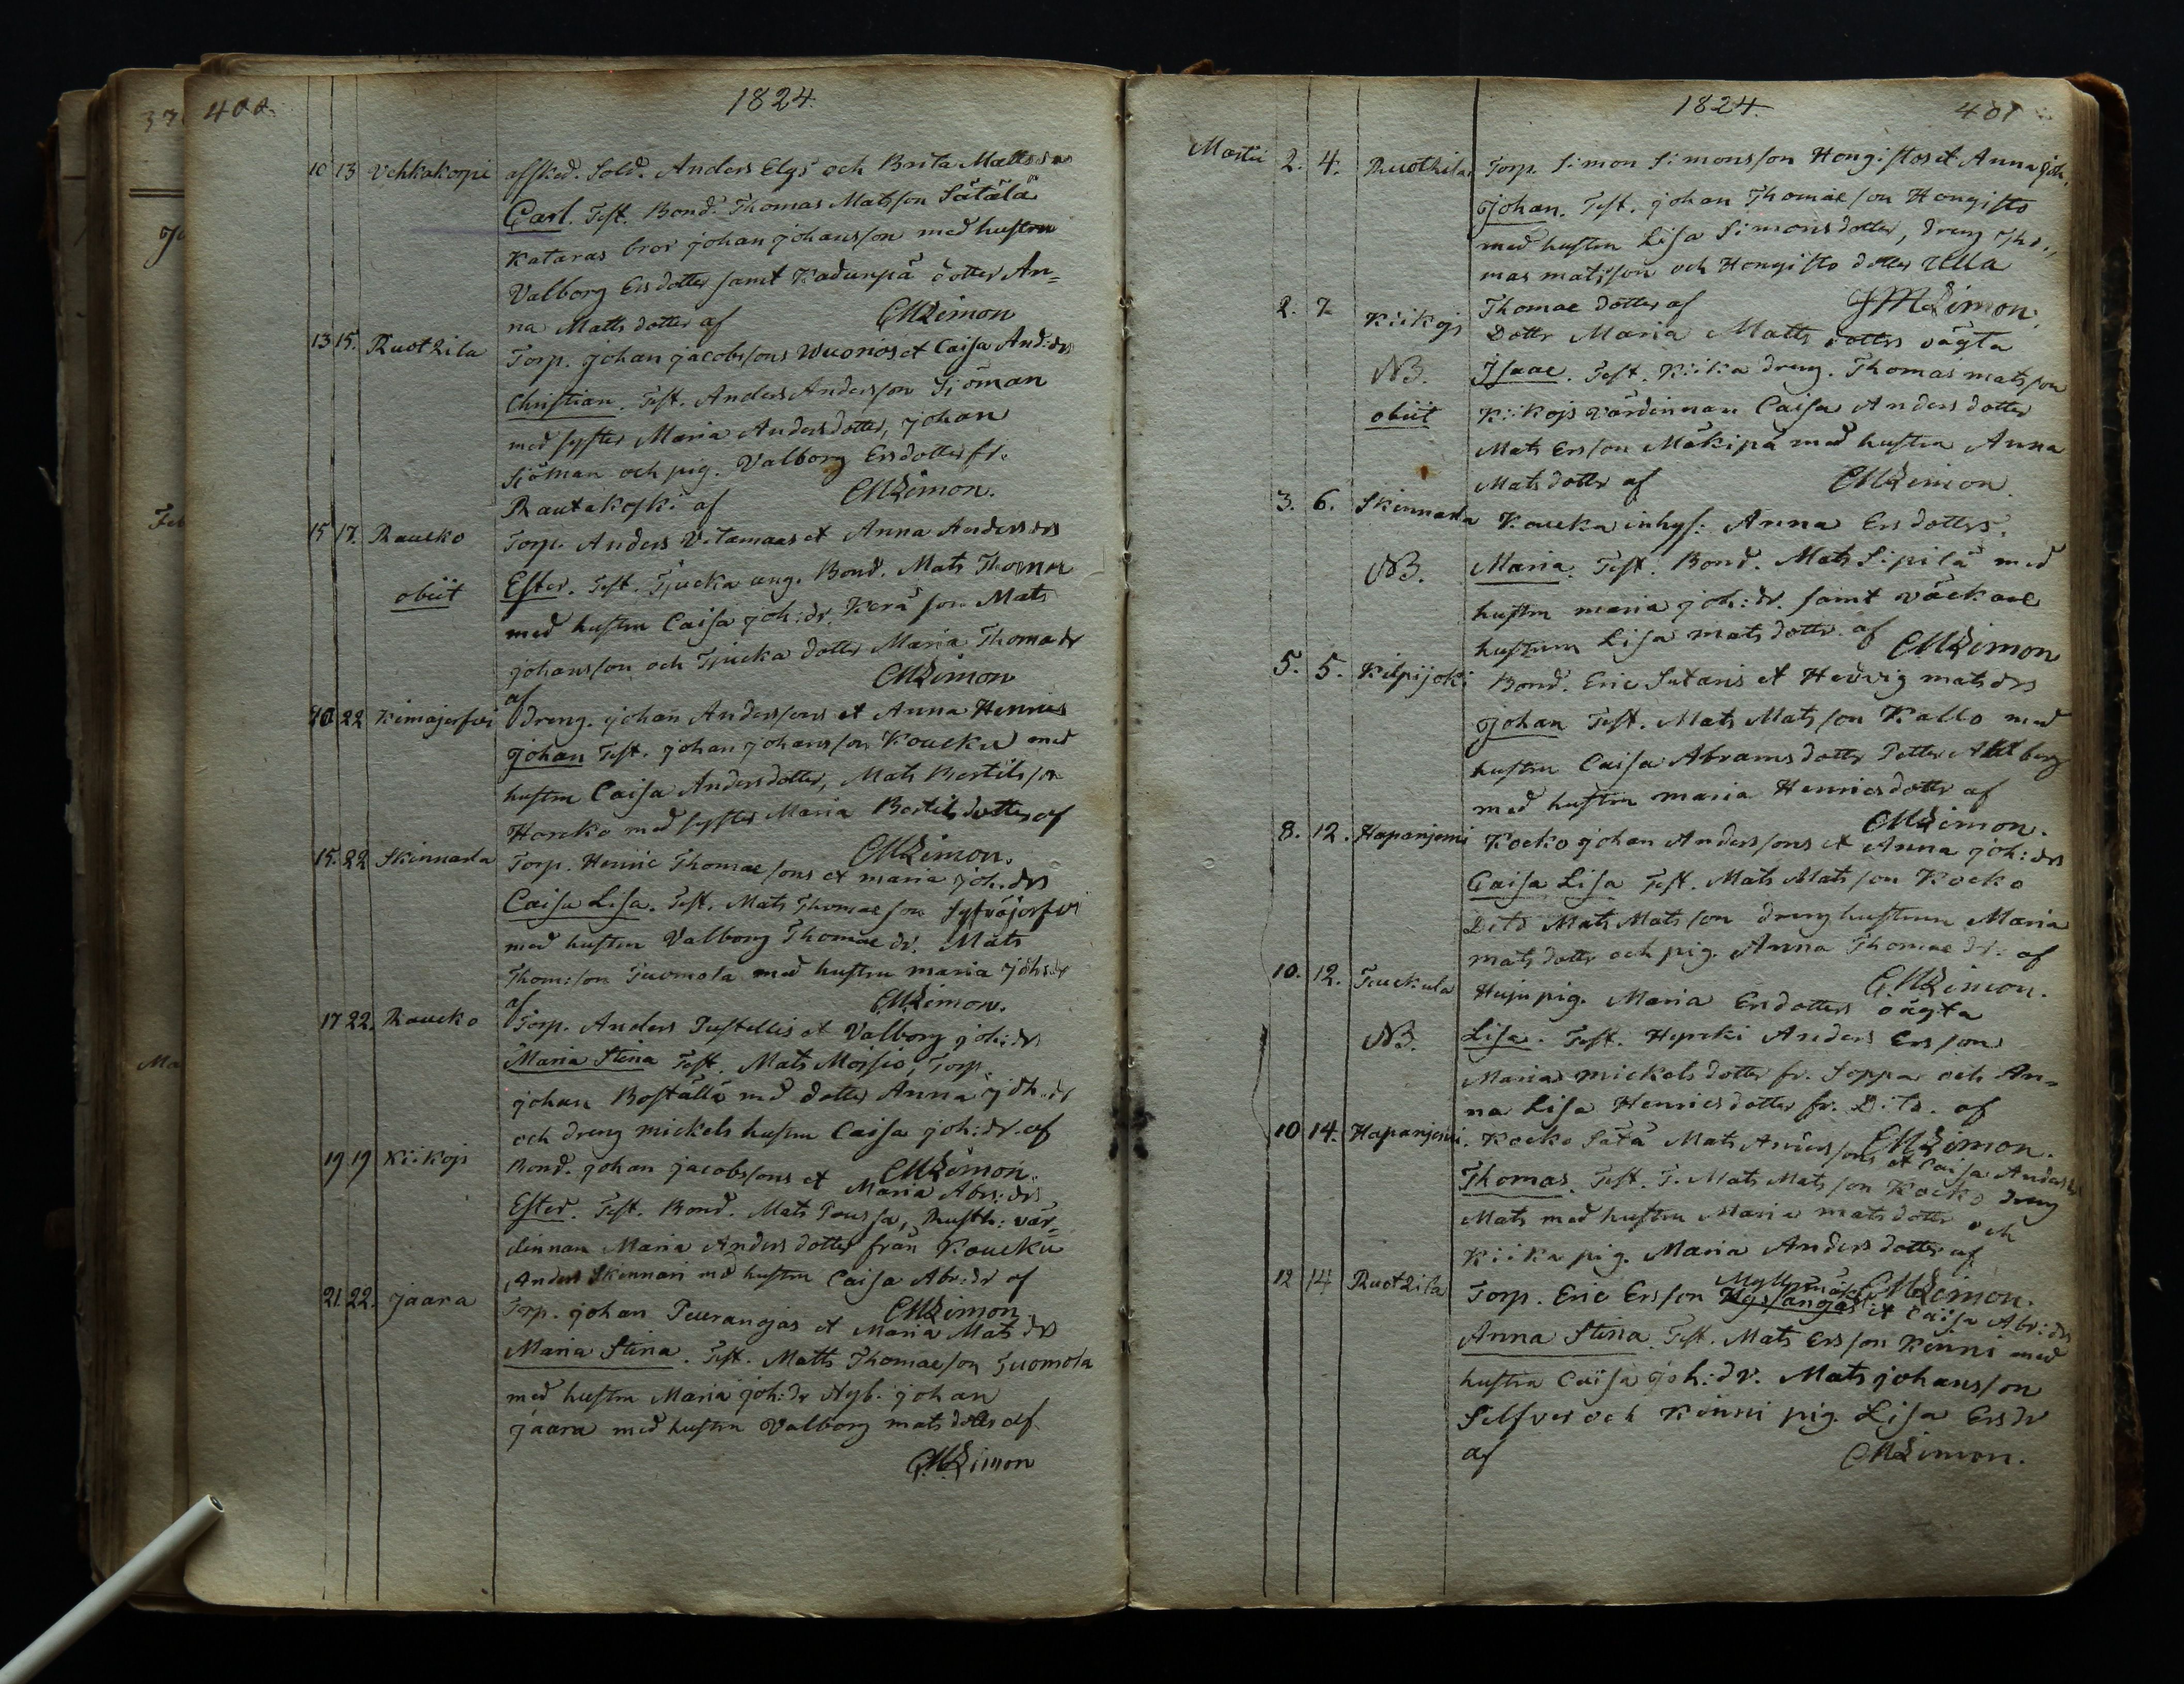 400.
1824.
10 13 Vehkakopi afsked. Sold. Anders Elgs och Brita Matts drs
Carl. Test. Bond. Thomas Matsson Sätälä
Kataras bror Johan Johansson med hustru
Valborg Ersdotter samt Kadunpä dotter An=
na Matts dotter af CMLimon
13 15. Ruotzila Torp. Johan Jacobssons Wuorios et Caisa And: drs
Christian. Test. Anders Andersson Sjöman
med syster Maria Anders dotter, Johan
Sjöman och pig. Valborg Ersdotter fr.
Rautakoski af CMLimon.
15 17. Raucko Torp. Anders Vitamaas et Anna Anders drs
obiit Ester. Test. Tjucka ung. Bond. Mats Thomas
med hustru Caisa Joh: dr. Kerä son Mats
Johansson och Tjucka dotter Maria Thomæ dr
af CMLimon
22 Kimajerfvi Dreng. Johan Anderssons et Anna Henrics
Johan Test. Johan Johansson Koucku med
hustru Caisa Andersdotter, Mats Bertilsson
Horcko med syster Maria Bertils dotter af
CMLimon.
15. 22 Skinnarla Torp. Henric Thomæsons et Maria Joh. drs
Caisa Lisa. Test. Mats Thomæson Syfväjerfvi
med hustru Valborg Thomæ dr. Mats
Thom:son Tuomola med hustru Maria Joh: dr
af CMLimon.
17 22. Raucko Torp. Anders Tustellis et Valborg Joh: drs
Maria Stina Test. Mats Moisio, Torp.
Johan Boställä med dotter Anna Joh. dr
och dreng Mickels hustru Caisa Joh: dr. af
CMLimon.
19 19 Kiikois Bond. Johan Jacobssons et Maria Abr: drs
Ester. Test. Bond. Mats Poussa, Rusth: vär=
dinnan Maria Anders dotter från Koucku
Anders Skinnari med hustru Caisa Abr: dr af
CMLimon
21. 22. Jaara Torp. Johan Peurangas et Maria Mats drs
Maria Stina. Test. Matts Thomæson Tuomola
med hustru Maria Joh: dr Nyb. Johan
Jaara med hustru Valborg Mats dotter af
CMLimon
1824.
401
Martii 2. 4. Ruothila Torp. Simon Simonsson Hongistos et Anna Joh.
Johan. Test. Johan Thomæson Hongisto
med hustru Lisa Simonsdotter, dreng Tho=
mas Matsson och Hongisto dotter Ulla
Thomæ dotter af CMLimon.
2. 7. Kiikois Dotter Maria Matts dotters oägta
NB. Isaac. Test. Kiika dreng. Thomas Matsson
obiit Kiikois värdinnan Caisa Anders dotter
Mats Ersson Mäkipä med hustru Anna
Matsdotter af CMLimon.
3. 6. Skinnarla Koucka inhys: Anna Ers dotters.
NB. Maria. Test. Bond. Mats Sipilä med
hustru Maria Joh: dr. samt
hustrun Lisa Mats dotter af CMLimon
5. 5. Kilpijoki Bond. Eric Sutaris et Hedvig Mats drs
Johan Test. Mats Matsson Kallo med
hustru Caisa Abrams dotter Petter Ahlberg
med hustru Maria Henricsdotter af
CMLimon.
8. 12. Hapanjemi Kocko Johan Anderssons et Anna Joh: drs
Caisa Lisa Test. Mats Matsson Kocko
Dito Mats Matsson dreng hustrun Maria
Mats dotter och pig. Anna Thomæ dr. af
CMLimon.
10. 12. Tuckula Huju pig. Maria Ersdotters oägta
NB. Lisa. Test. Hyrcki Anders Ersson
Maria Mickels dotter fr. Soppa och An=
na Lisa Henricsdotter fr. Dito. af
CMLimon.
10 14. Hapanjemi. Kocko Sätä Mats Anderssons et Caisa Anders drs
Thomas. Test. T. Mats Matsson Kocko dreng
Mats med hustru Maria Mats dotter och
Kiika pig. Maria Anders dotter af
CMLimon.
12 14 Ruotzila Torp. Eric Ersson Myllymäki et Caisa Abr: drs
Anna Stina. Test. Mats Ersson Kinni med
hustru Caisa Joh: dr. Mats Johansson
Selfver och Kinni pig. Lisa Ers dr
af CMLimon.